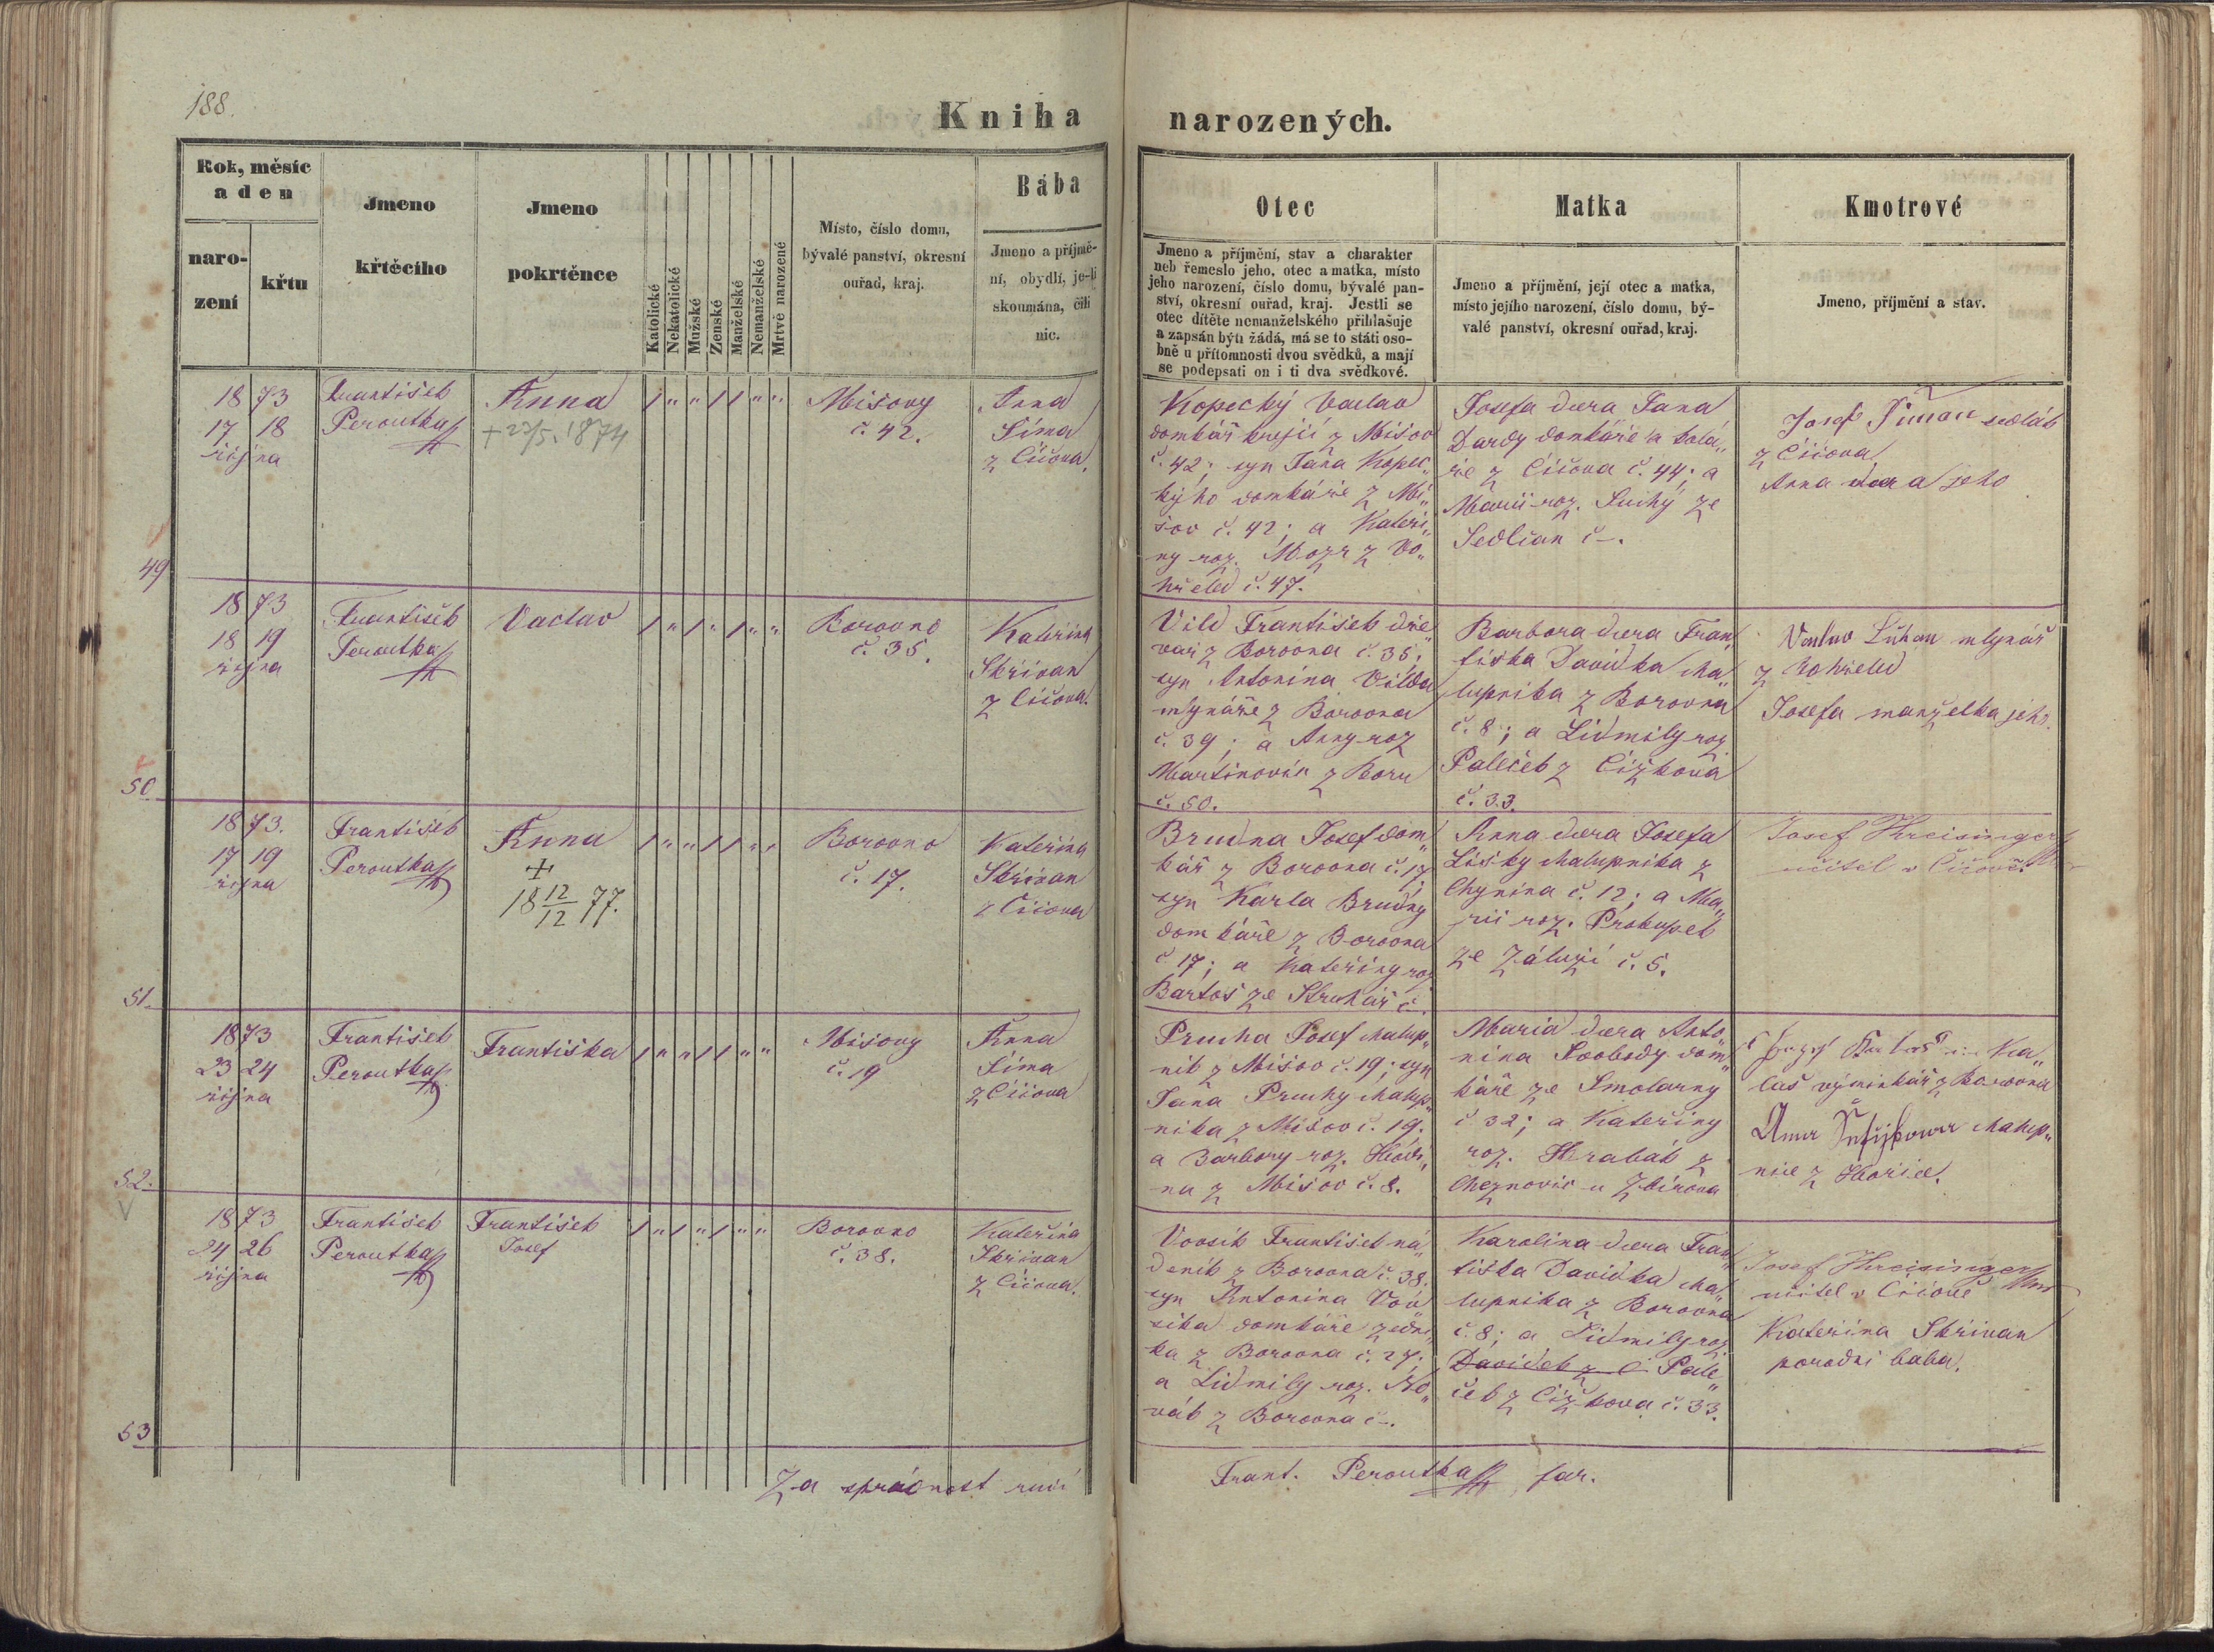 188.
Kniha narozených.
Rok, měsíc
a den
naro-
zení
křtu
Jmeno
křtěcího
Jmeno
pokrtěnce
Katolické
Nekatolické
Mužské
Ženské
Manželské
Nemanželské
Mrtvě narozené
Místo, číslo domu,
bývalé panství, okresní
ouřad, kraj.
Bába
Jmeno a příjmě-
ní, obydlí, je-li
skoumána, čili
nic.
Otec
Jmeno a příjmění, stav a charakter
neb řemeslo jeho, otec a matka, místo
jeho narození, číslo domu, bývalé pan-
ství, okresní ouřad, kraj. Jestli se
otec dítěte nemanželského přihlašuje
a zapsán býti žádá, má se to státi oso-
bně u přítomnosti dvou svědků, a mají
se podepsati on i ti dva svědkové.
Matka
Jmeno a příjmění, její otec a matka,
místo jejího narození, číslo domu, bý-
valé panství, okresní ouřad, kraj.
Kmotrové
Jmeno, příjmění a stav.
49
1873
17 18
října
František
Peroutka
Anna
+ 23/5. 1874
Mišovy
č. 42.
Anna
Šíma
z Číčova,
Kopecký Vaclav
domkář krejčí z Mišov
č. 42; syn Jana Kopec„
kýho domkáře z Mi„
šov č. 42; a Kateři„
ny roz. Mozr z Vo„
hřeled č. 47.
Josefa dcera Jana
Dardy domkáře a kolá„
ře z Číčova č. 44; a
Marii roz. Suchý ze
Sedlčan č –.
Josef Šiman sedlák
z Číčova
Anna dcera jeho
50
1873
18 19
října
František
Peroutka
Vaclav
Borovno
č. 35.
Kateřina
Skřivan
z Číčova.
Vild František dře„
var z Borovna č. 35;
syn Antonína Vilda
mlynáře z Borovna
č. 39; a Anny roz
Martinovín z Boru
č. 50.
Barbora dcera Fran„
tiška Davídka cha„
lupníka z Borovna
č. 8; a Lidmily roz
Paleček z Čížkova
č. 33.
Vaclav mlynář
z Vohřeled
Josefa manželka jeho.
51.
1873.
17 19
října
František
Peroutka
Anna
+
18 12/12 77.
Borovno
č. 17.
Kateřina
Skřivan
z Číčova
Brudna Josef dom„
kář z Borovna č. 17
syn Karla Brudny
domkáře z Borovna
č 17; a Kateřiny roz
Bartoš ze Struhař č.
Anna dcera Josefa
Lišky chalupníka z
Chynina č. 12; a Ma„
rii roz. Prokupek
ze Zálužί č. 5.
Josef Hreisinger
učitel v Číčově.
52.
1873
23 24
října
František
Peroutka
Františka
Mišovy
č. 19
Anna
Šíma
z Číčova
Prucha Josef chalup„
ník z Mišov č. 19; syn
Jana Pruchy chalup„
níka z Mišov č. 19.
a Barbory roz.
na z Mišov č. 8.
Maria dcera Anto„
nína Svobody dom„
káře ze Smolarny
č 32; a Kateřiny
roz. Hrabák z
Cheznovic u Zbirova
výminkář z Borovna
Anna chalup„
nice z
53
1873
24 26
října
František
Peroutka
František
Josef
Borovno
č. 38.
Kateřina
Skřivan
z Číčova.
Voosík František ná„
deník z Borovna č. 38.
syn Antonína Voo„
síka domkáře zední„
ka z Borovna č. 27;
a Lidmily roz. No„
vák z Borovna č –.
Karolina dcera Fran„
tiška Davídka cha„
lupníka z Borovna
č. 8; a Lidmily roz
Davidek z Č Pale„
ček z Čížkova č. 33.
Josef Hreisinger
učitel v Číčově
Kateřina Skřivan
porodní baba.
Za správnost ručí Frant. Peroutka far.